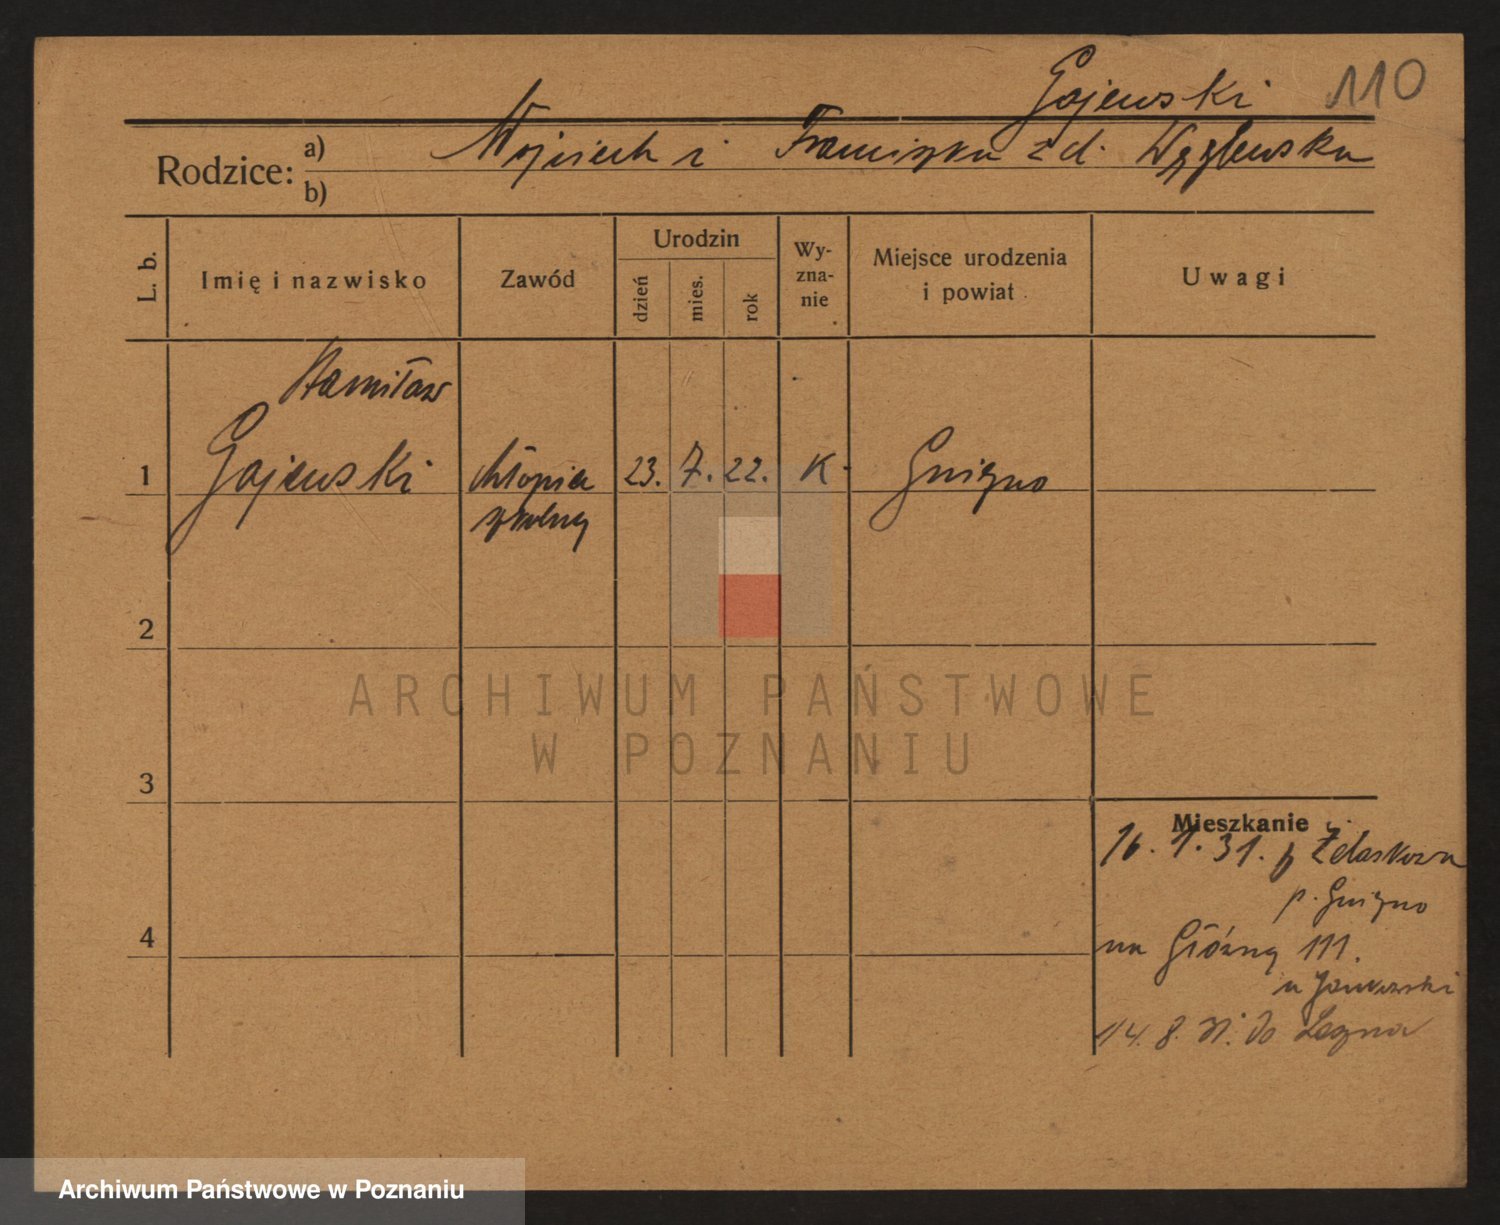 Gajewski 110
Rodzice: a) Wojciech i Franciszka z d. Węglewska
b)
L. b.
Imię i nazwisko
Zawód
Urodzin
dzień
mies.
rok
Wy-
zna-
nie
Miejsce urodzenia
i powiat
Uwagi
Stanisław
1 Gajewski chłopiec 23. 7. 22. K. Gniezno
szkolny
2
3
4
Mieszkanie
16. 1. 31. z Zdaskowa
p. Gniezno
na Główną 111.
u Jankowski
14. 8. 31. do
ARCHIWUM PAŃSTWOWE
W POZNANIU
Archiwum Państwowe w Poznaniu